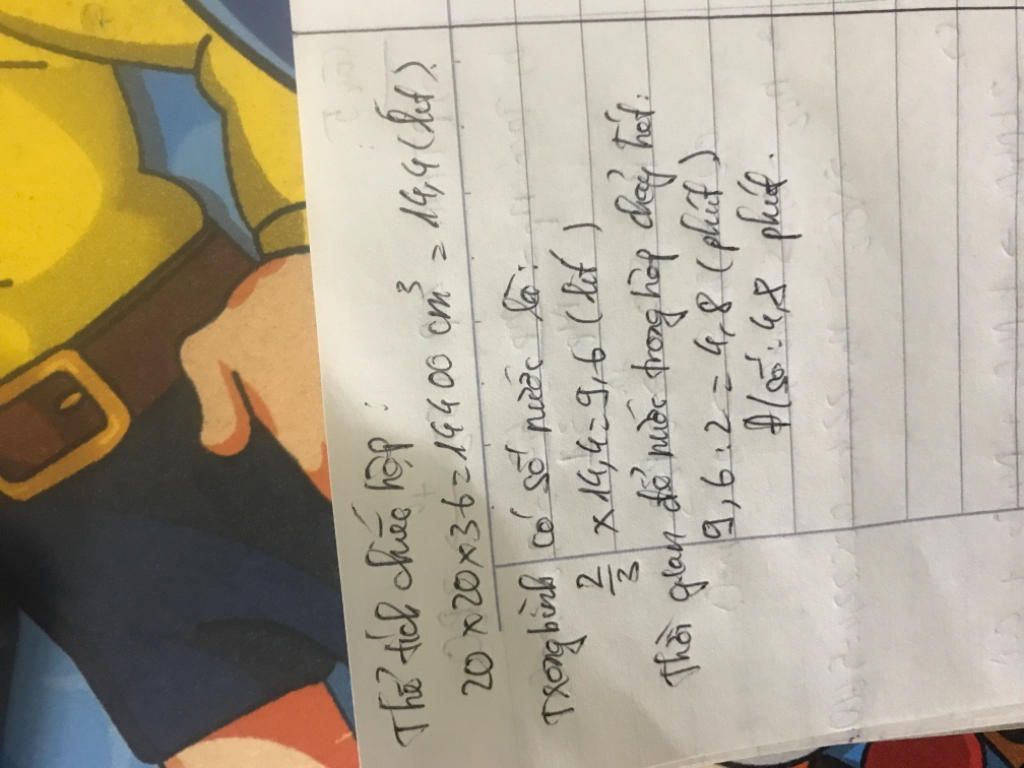 Thể tích chiếc hộp:
20 x 20 x 36 = 14400 cm³ = 14,4 (lít).
Trong bình có số nước là:
2/3 x 14,4 = 9,6 (lít)
Thời gian để nước trong hộp chảy hết:
9,6 : 2 = 4,8 (phút)
Đ/số: 4,8 phút.